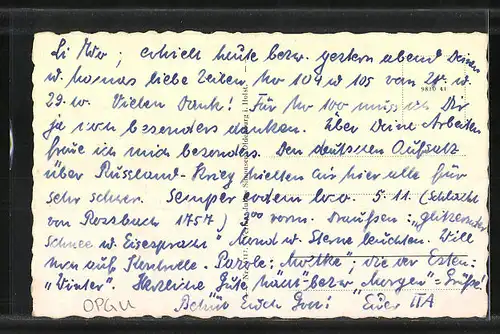 Li Mo; erhielt heute bezw. gestern abend Deine
u. Mamas liebe Zeilen No 104 u 105 vom 28. u.
29. 10. Vielen Dank! Für No 100 muss ich Dir
9810 41
ja noch besonders danken. Über Deine Arbeiten
freue ich mich besonders. Den deutschen Aufsatz
über Russland-Krieg hielten wir hier alle für
sehr schwer. Semper eadem loco. 5.11. (Schlacht
von Rossbach 1757) 9⁰⁰ vorm. Draußen: „glitzernder
Schnee u. Eisespracht" Mond u. Sterne leuchten. Will
nun auf Kontrolle. Parole: „Moltke", wie der Erste:
„Winter". Herzliche Gute „Nacht"- bezw. „Morgen"-Grüße!
OPGU
Behüt Euch Gott! Euer